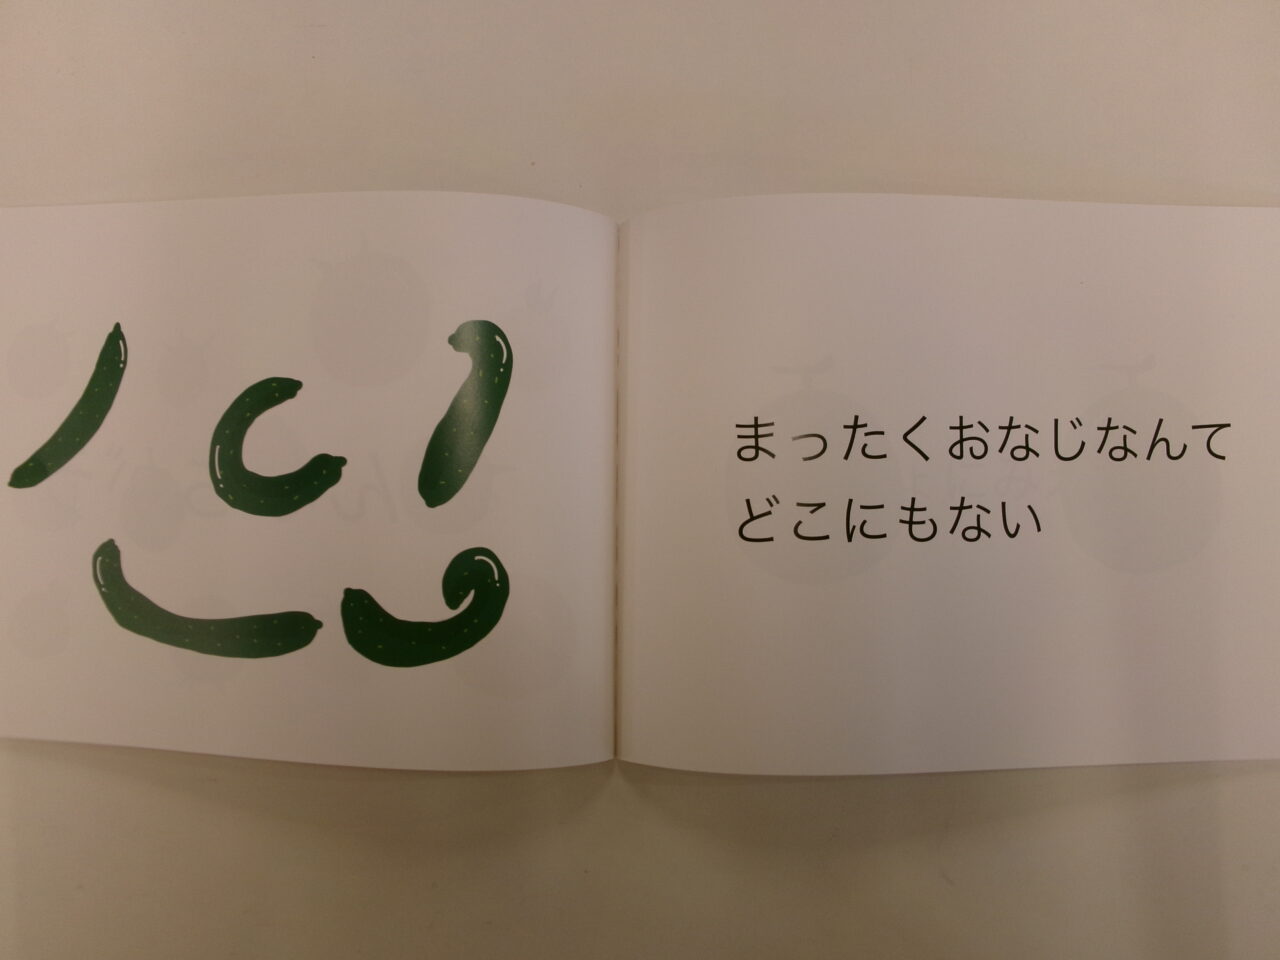 まったくおなじなんて
どこにもない